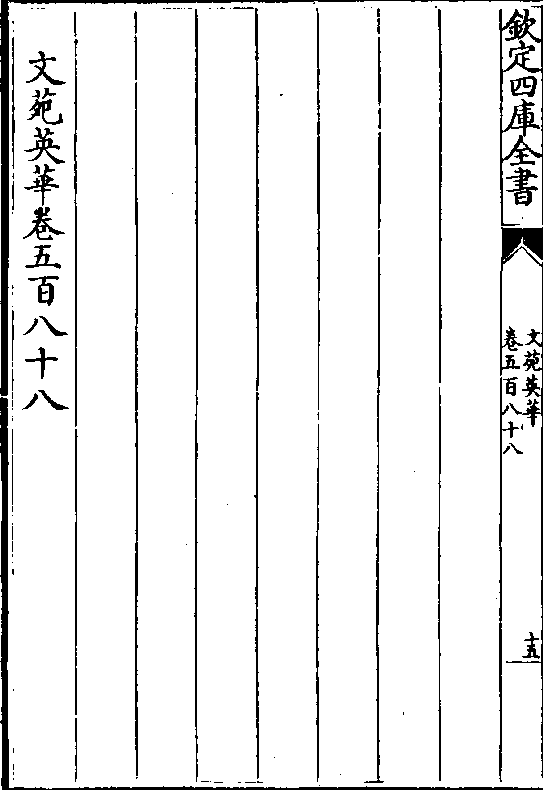 欽定四庫全書
文苑英華
卷五百八十八
十五
文苑英華卷五百八十八